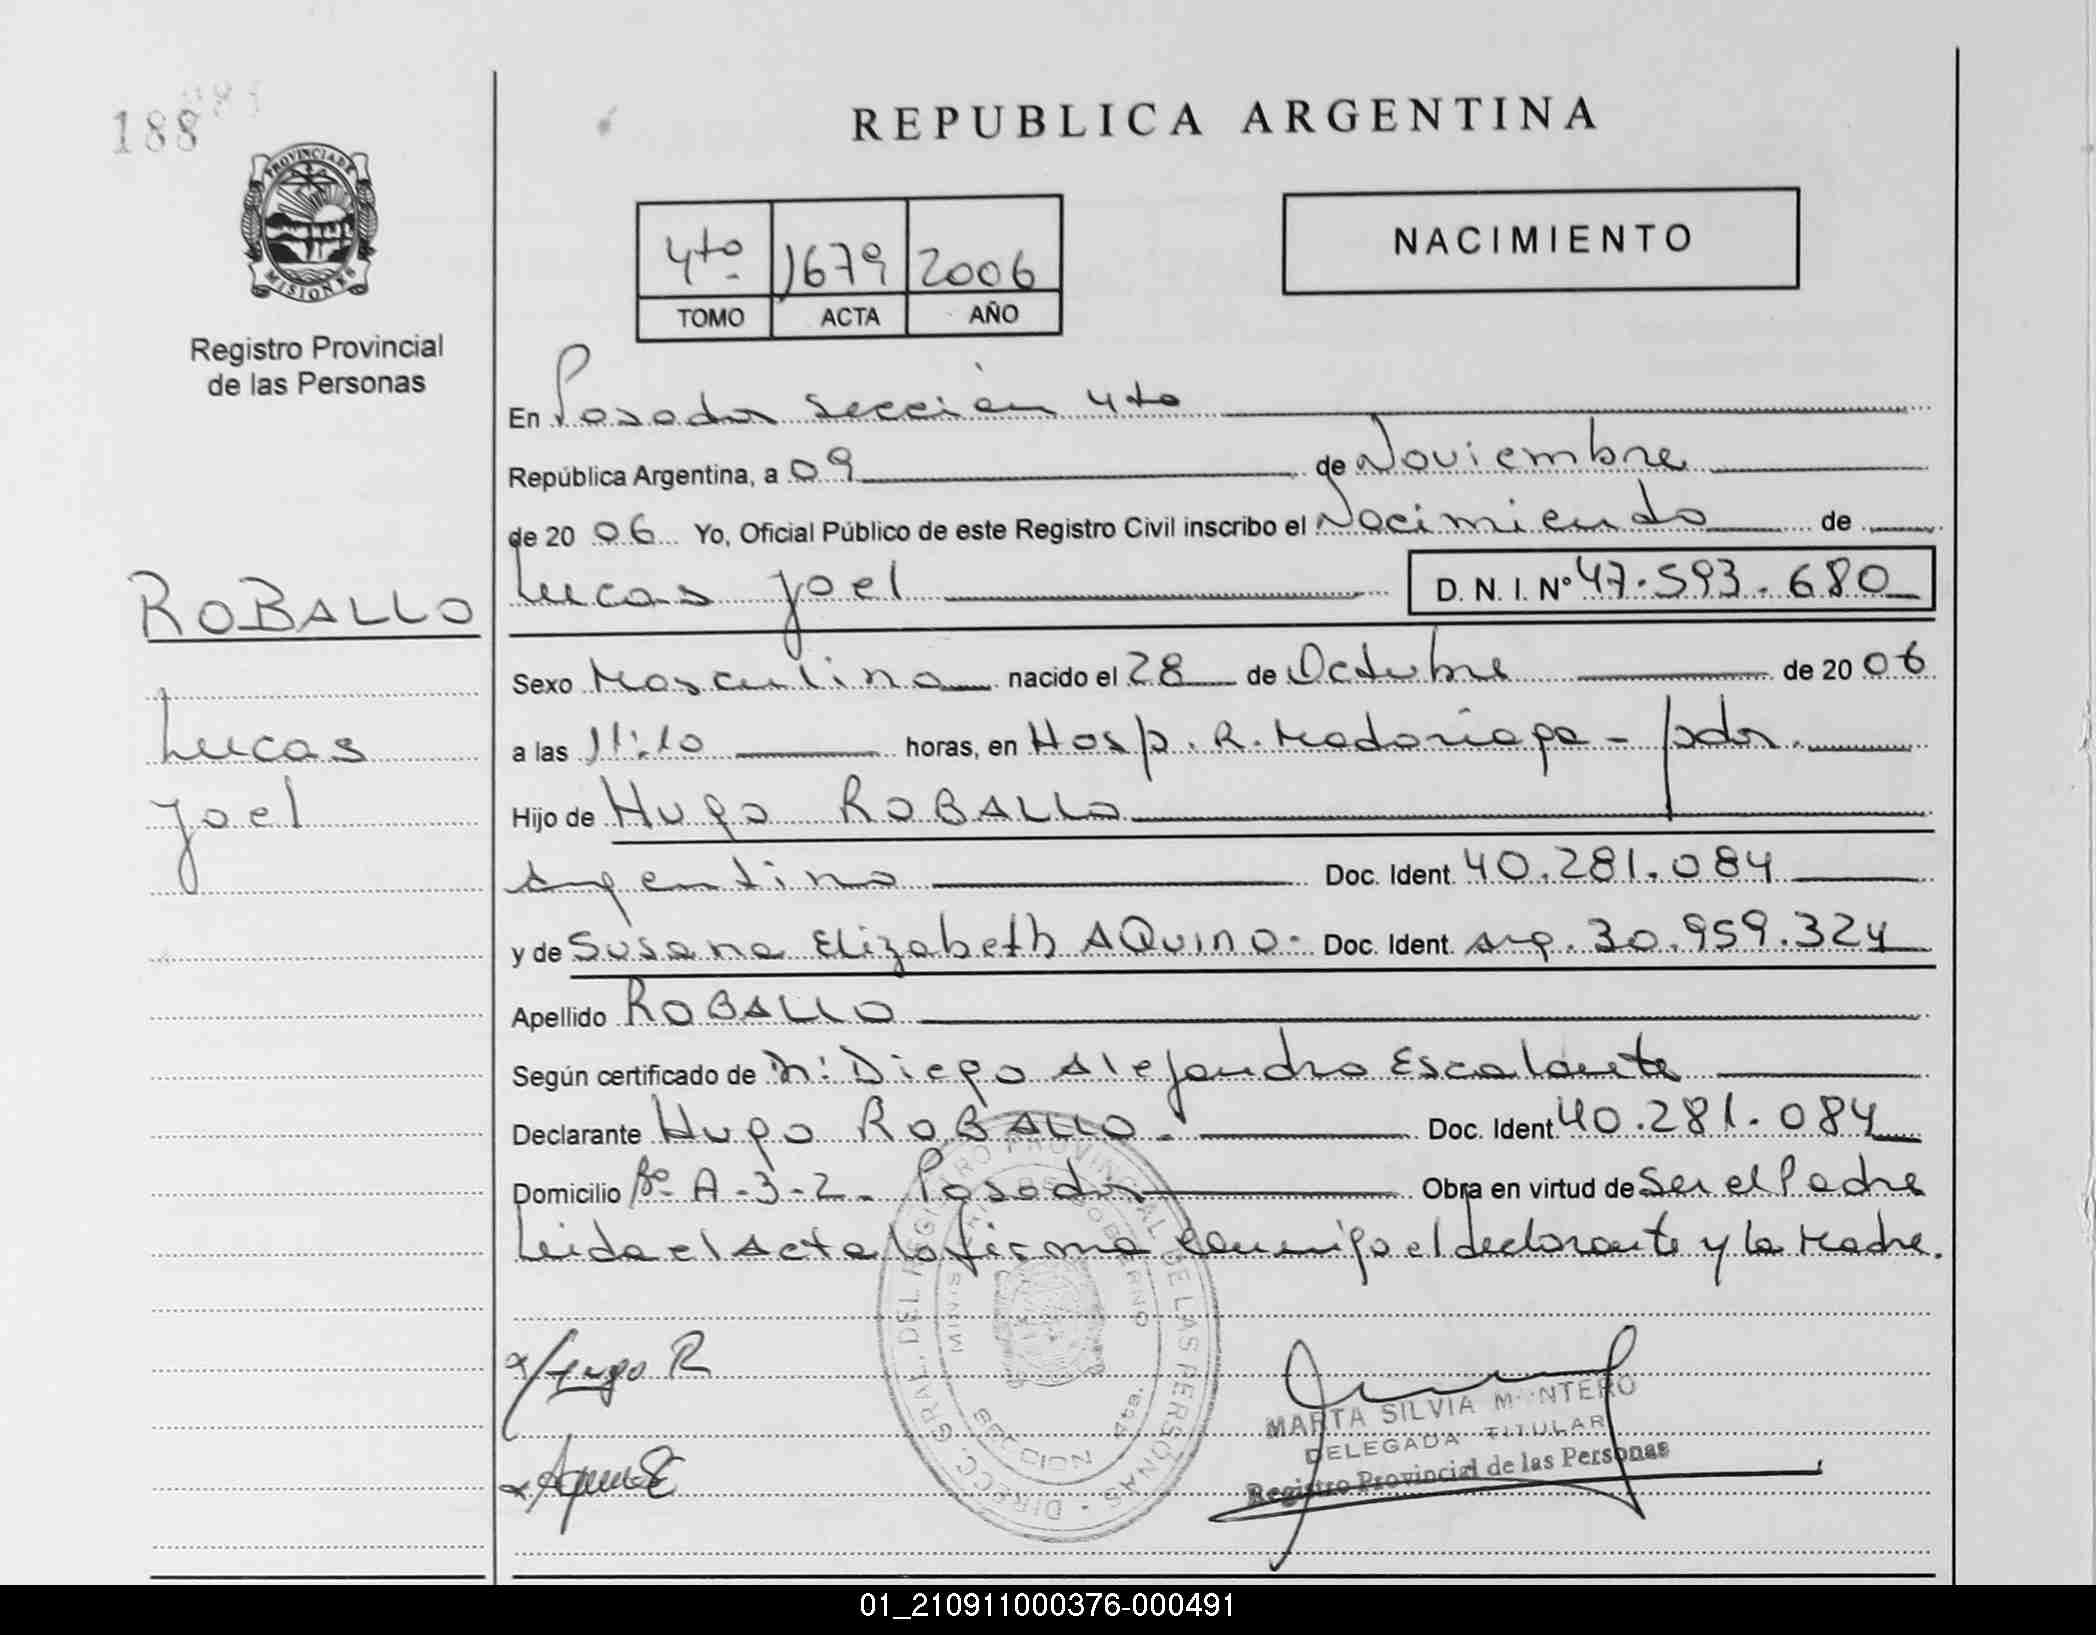 188
PROVINCIA DE
MISIONES
Registro Provincial
de las Personas
ROBALLO
Lucas
Joel
REPUBLICA ARGENTINA
4to 1679 2006
TOMO ACTA AÑO
NACIMIENTO
En Posadas sección 4to
República Argentina, a 09 de Noviembre
de 2006 Yo, Oficial Público de este Registro Civil inscribo el Nacimiento de
Lucas Joel D. N. I. Nº 47.593.680
Sexo Masculino nacido el 28 de Octubre de 2006
a las 11:10 horas, en Hosp. R. Madariaga - pdas.
Hijo de Hugo ROBALLO
Argentino Doc. Ident. 40.281.084
y de Susana Elizabeth AQuino - Doc. Ident. arg. 30.959.324
Apellido ROBALLO
Según certificado de Diego Alejandro Escalante
Declarante Hugo ROBALLO - Doc. Ident. 40.281.084
Domicilio Bº A-3-2- Posadas Obra en virtud de Ser el Padre
Leida el Acta la firma conmigo el declarante y la Madre.
Hugo R
DIRECC. GRAL. DEL REGISTRO PROVINCIAL DE LAS PERSONAS
MARTA SILVIA MONTERO
DELEGADA TITULAR
Registro Provincial de las Personas
01_210911000376-000491